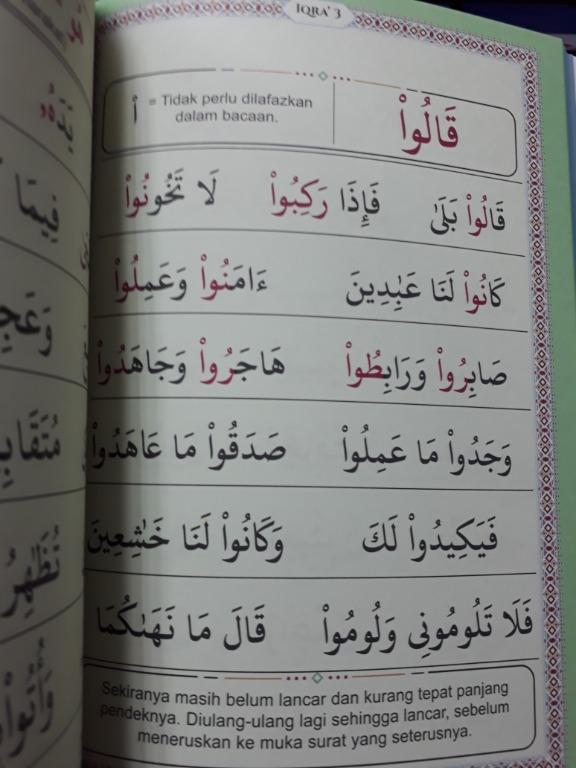 IQRA' 3
أْ = Tidak perlu dilafazkan
dalam bacaan.
قَالُواْ
قَالُواْ بَلَىٰ فَإِذَا رَكِبُواْ لَا تَخُونُواْ
كَانُواْ لَنَا عَٰبِدِينَ ءَامَنُواْ وَعَمِلُواْ
صَابِرُواْ وَرَابِطُواْ هَاجَرُواْ وَجَاهَدُواْ
وَجَدُواْ مَا عَمِلُواْ صَدَقُواْ مَا عَاهَدُواْ
فَيَكِيدُواْ لَكَ وَكَانُواْ لَنَا خَٰشِعِينَ
فَلَا تَلُومُونِى وَلُومُواْ قَالَ مَا نَهَىٰكُمَا
Sekiranya masih belum lancar dan kurang tepat panjang
pendeknya. Diulang-ulang lagi sehingga lancar, sebelum
meneruskan ke muka surat yang seterusnya.